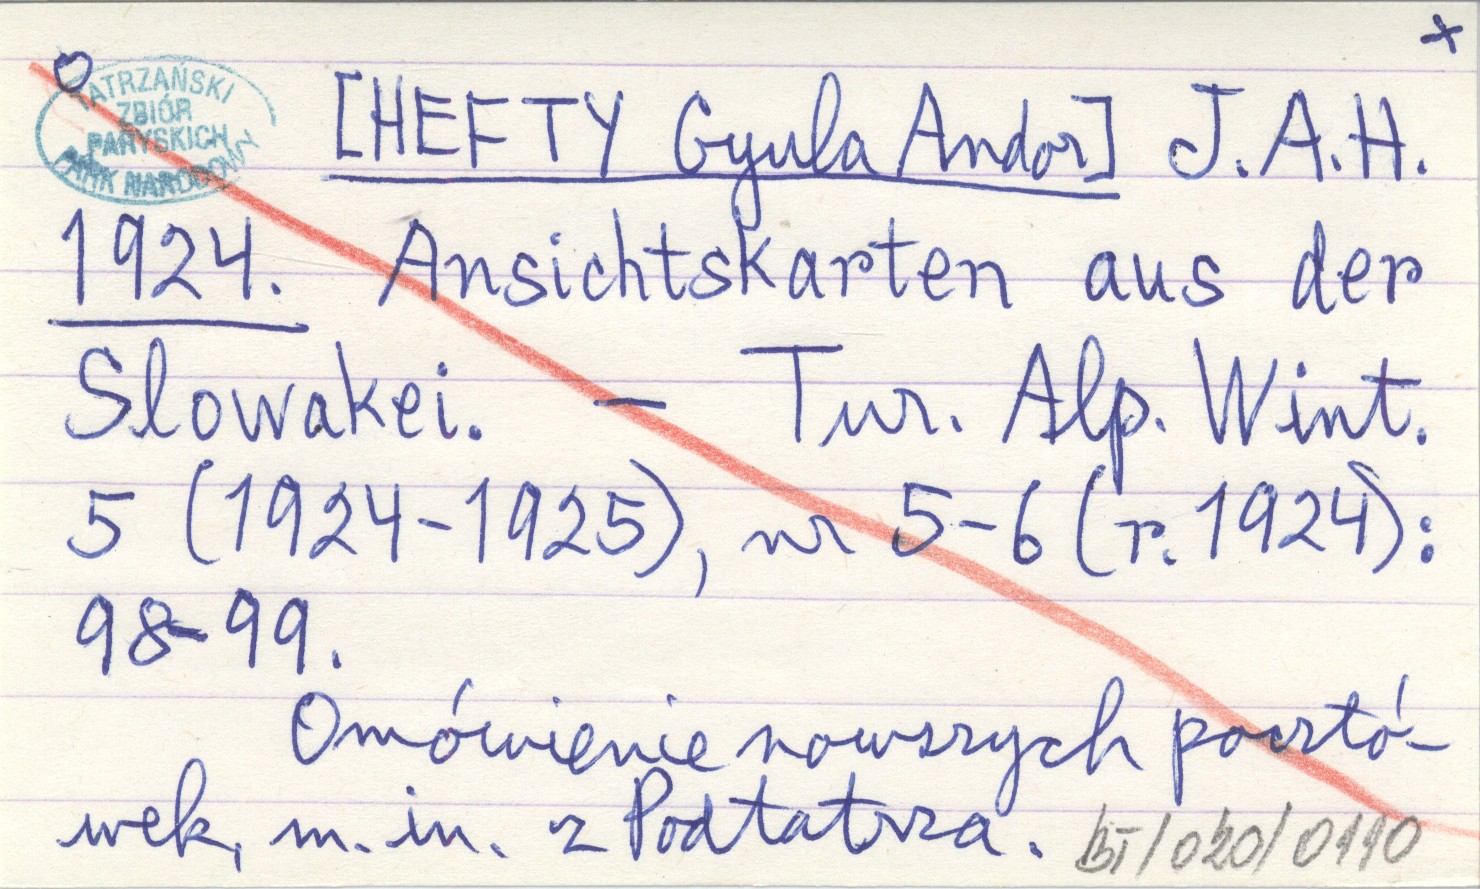 x
TATRZAŃSKI
ZBIÓR
PARYSKICH
PARK NARODOWY
[HEFTY Gyula Andor] J.A.H.
1924. Ansichtskarten aus der
Slowakei. – Tur. Alp. Wint.
5 (1924-1925), nr 5-6 (r. 1924):
98-99.
Omówienie nowszych pocztó-
wek, m. in. z Podtatrza.
bT/020/0110